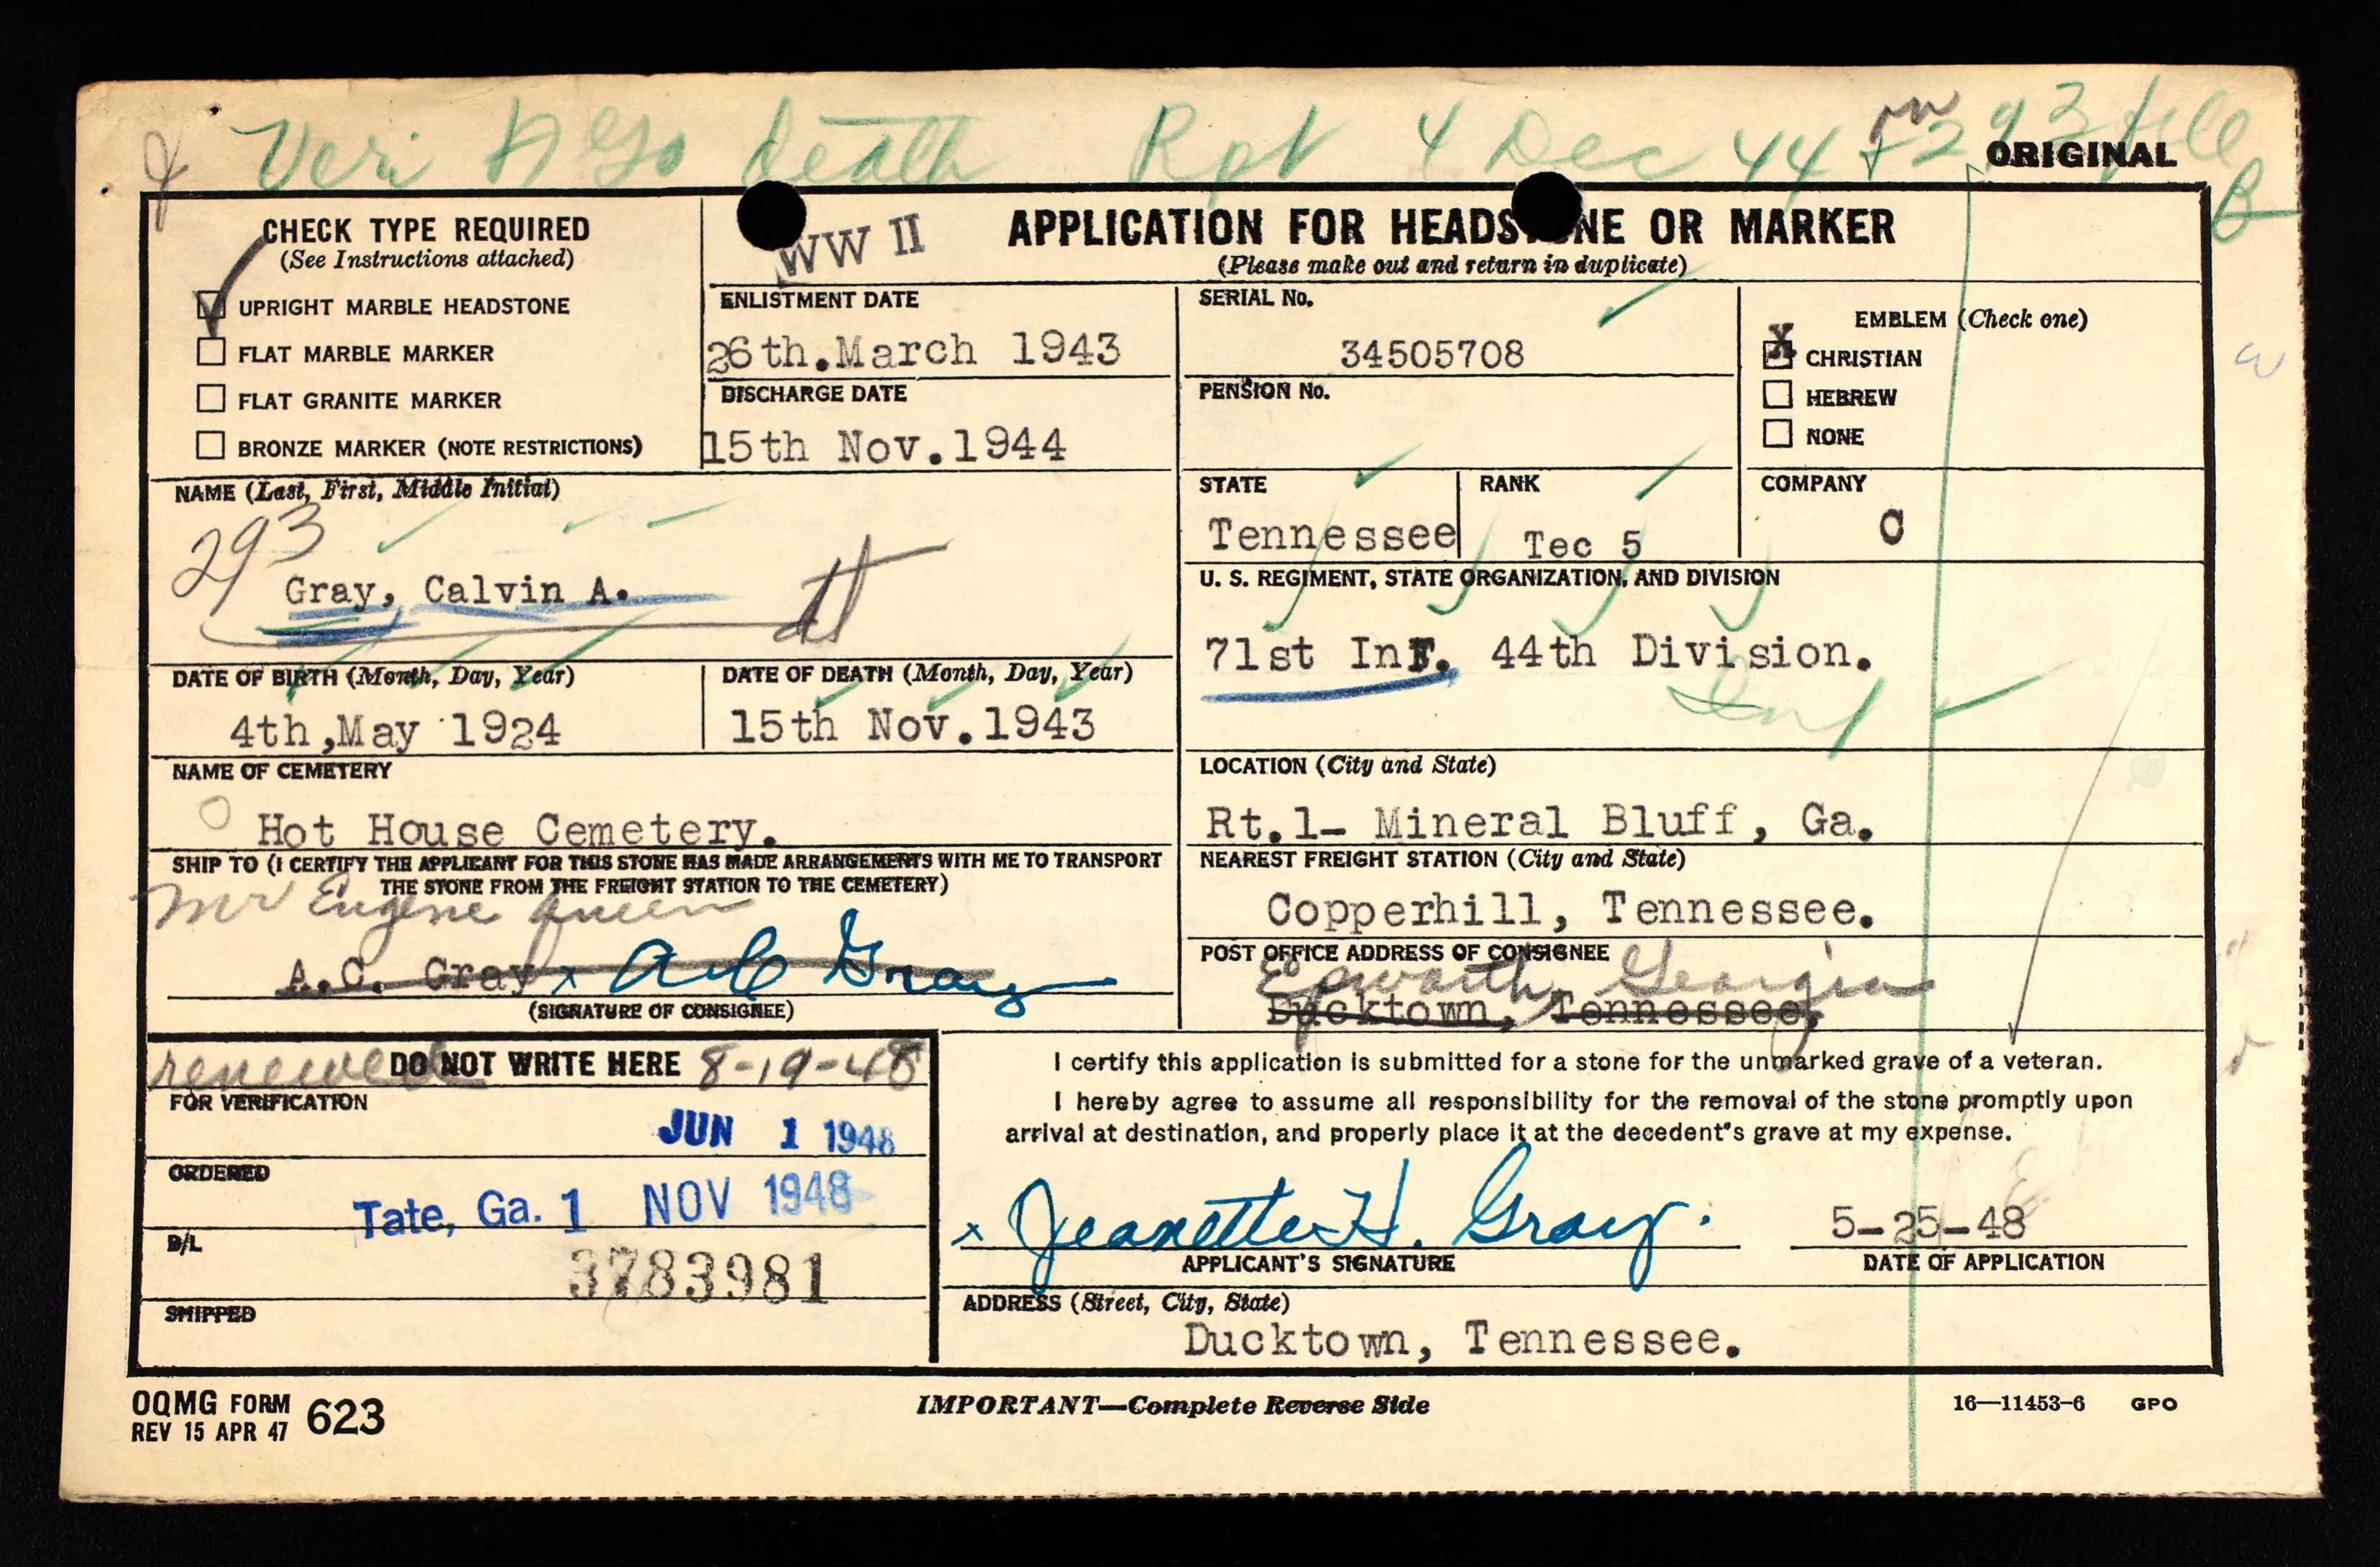 Veri death Rpt 4 Dec 44 293 file
ORIGINAL
B
CHECK TYPE REQUIRED
(See Instructions attached)
UPRIGHT MARBLE HEADSTONE
FLAT MARBLE MARKER
FLAT GRANITE MARKER
BRONZE MARKER (NOTE RESTRICTIONS)
WW II
APPLICATION FOR HEADSTONE OR MARKER
(Please make out and return in duplicate)
ENLISTMENT DATE
26th.March 1943
DISCHARGE DATE
15th Nov.1944
SERIAL No.
34505708
PENSION No.
EMBLEM (Check one)
X CHRISTIAN
HEBREW
NONE
NAME (Last, First, Middle Initial)
293
Gray, Calvin A.
STATE
Tennessee
RANK
Tec 5
COMPANY
C
U. S. REGIMENT, STATE ORGANIZATION, AND DIVISION
71st Inf. 44th Division.
Inf
DATE OF BIRTH (Month, Day, Year)
4th,May 1924
DATE OF DEATH (Month, Day, Year)
15th Nov.1943
NAME OF CEMETERY
Hot House Cemetery.
LOCATION (City and State)
Rt.1- Mineral Bluff, Ga.
SHIP TO (I CERTIFY THE APPLICANT FOR THIS STONE HAS MADE ARRANGEMENTS WITH ME TO TRANSPORT
THE STONE FROM THE FREIGHT STATION TO THE CEMETERY)
Mr Eugene Queen
A.C. Gray x A C Gray
(SIGNATURE OF CONSIGNEE)
NEAREST FREIGHT STATION (City and State)
Copperhill, Tennessee.
POST OFFICE ADDRESS OF CONSIGNEE
Epworth, Georgia
Ducktown, Tennessee.
renewed DO NOT WRITE HERE 8-19-48
FOR VERIFICATION
JUN 1 1948
ORDERED
Tate, Ga. 1 NOV 1948
B/L
3783981
SHIPPED
I certify this application is submitted for a stone for the unmarked grave of a veteran.
I hereby agree to assume all responsibility for the removal of the stone promptly upon
arrival at destination, and properly place it at the decedent's grave at my expense.
x Jeanette H. Gray.
APPLICANT'S SIGNATURE
5-25-48
DATE OF APPLICATION
ADDRESS (Street, City, State)
Ducktown, Tennessee.
OQMG FORM 623
REV 15 APR 47
IMPORTANT—Complete Reverse Side
16—11453-6 GPO